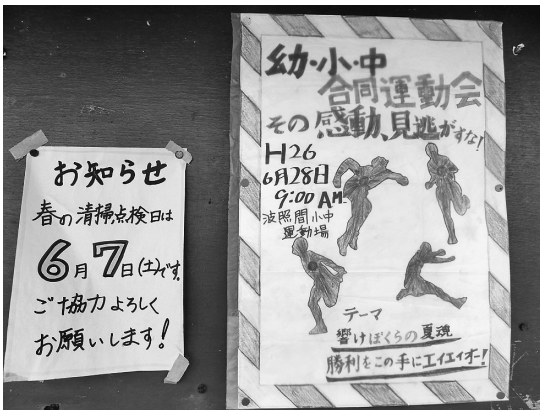 お知らせ
春の清掃点検日は
6月7日(土)です。
ご協力よろしく
お願いします!
幼・小・中
合同運動会
その感動、見逃がすな!
H26
6月28日
9:00AM~
波照間小中
運動場
テーマ
響けぼくらの夏魂
勝利をこの手にエイエイオー!